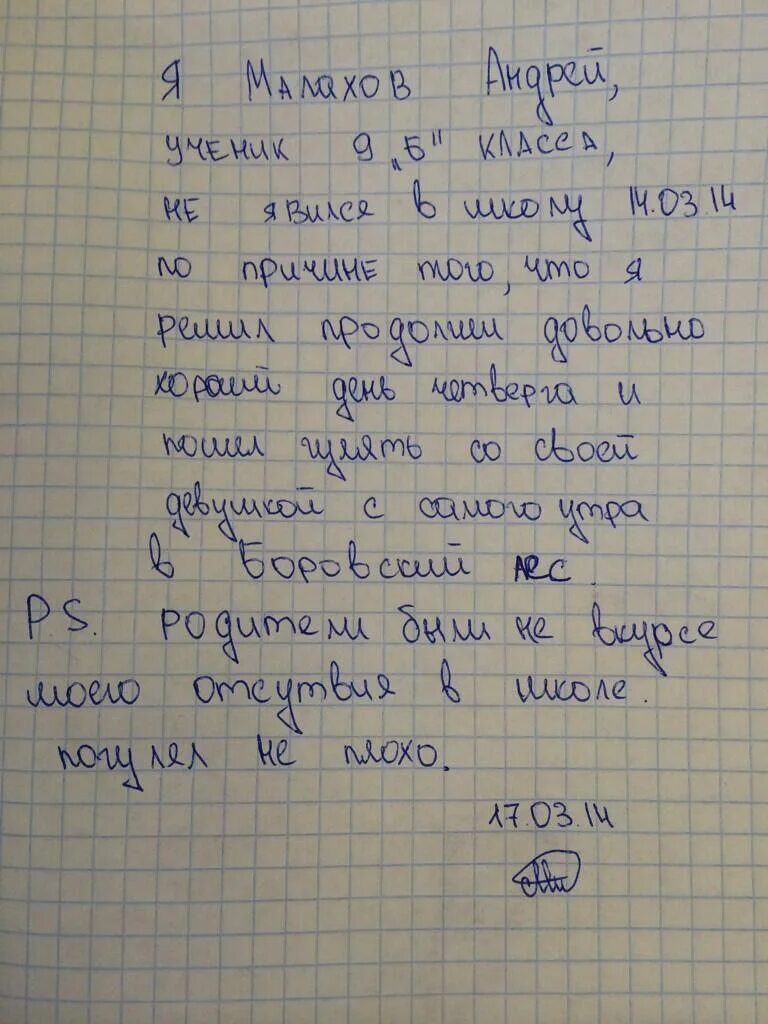 Я Малахов Андрей,
ученик 9 „Б" класса,
не явился в школу 14.03.14
по причине того, что я
решил продолжи довольно
хороший день четверга и
пошел гулять со своей
девушкой с самого утра
в Боровский лес.
P.S. родители были не вкурсе
моего отсутвия в школе.
погулял не плохо.
17.03.14